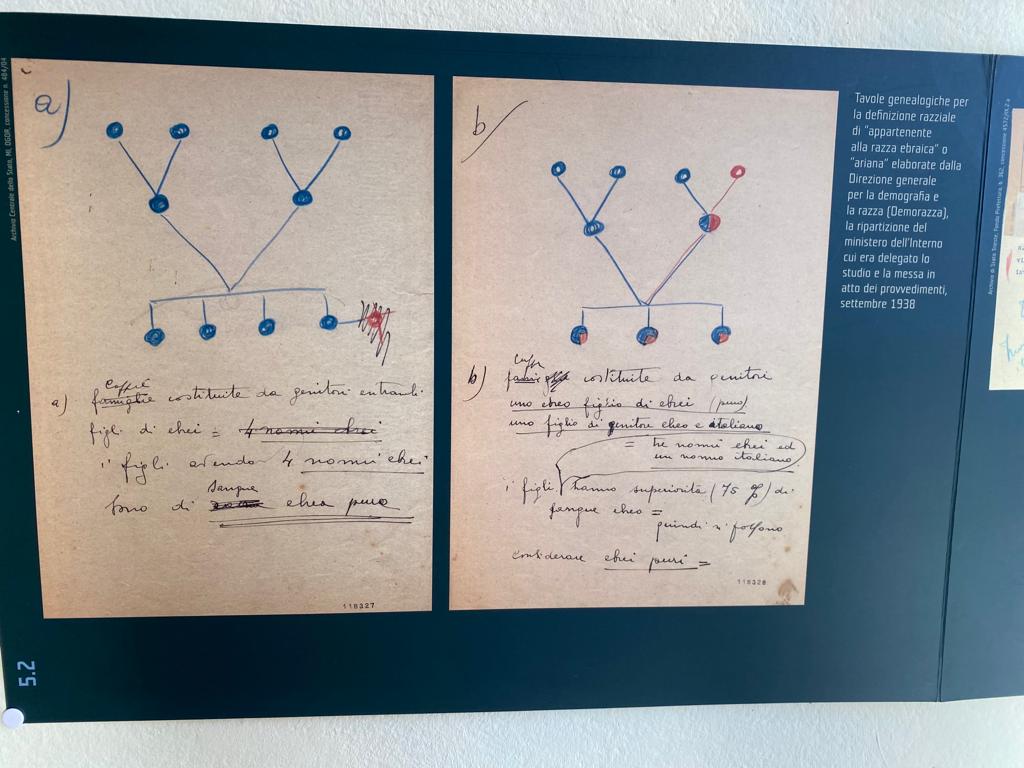 Archivio Centrale dello Stato, MI, DGDR, concessione n. 484/04
a)
Coppie
famiglie costituite da genitori entrambi
figli di ebrei = 4 nonni ebrei
i figli avendo 4 nonni ebrei
sono di sangue ebreo puro
118327
b
b) Coppie
costituite da genitori
uno ebreo figlio di ebrei (puro)
uno figlio di genitore ebreo e italiano
= tre nonni ebrei ed
un nonno italiano
i figli hanno superiorità (75 %) di
sangue ebreo =
quindi si possono
considerare ebrei puri =
118328
Tavole genealogiche per
la definizione razziale
di "appartenente
alla razza ebraica" o
"ariana" elaborate dalla
Direzione generale
per la demografia e
la razza (Demorazza),
la ripartizione del
ministero dell'Interno
cui era delegato lo
studio e la messa in
atto dei provvedimenti,
settembre 1938
Archivio di Stato Trieste, Fondo Prefettura, b. 362, concessione
5.2